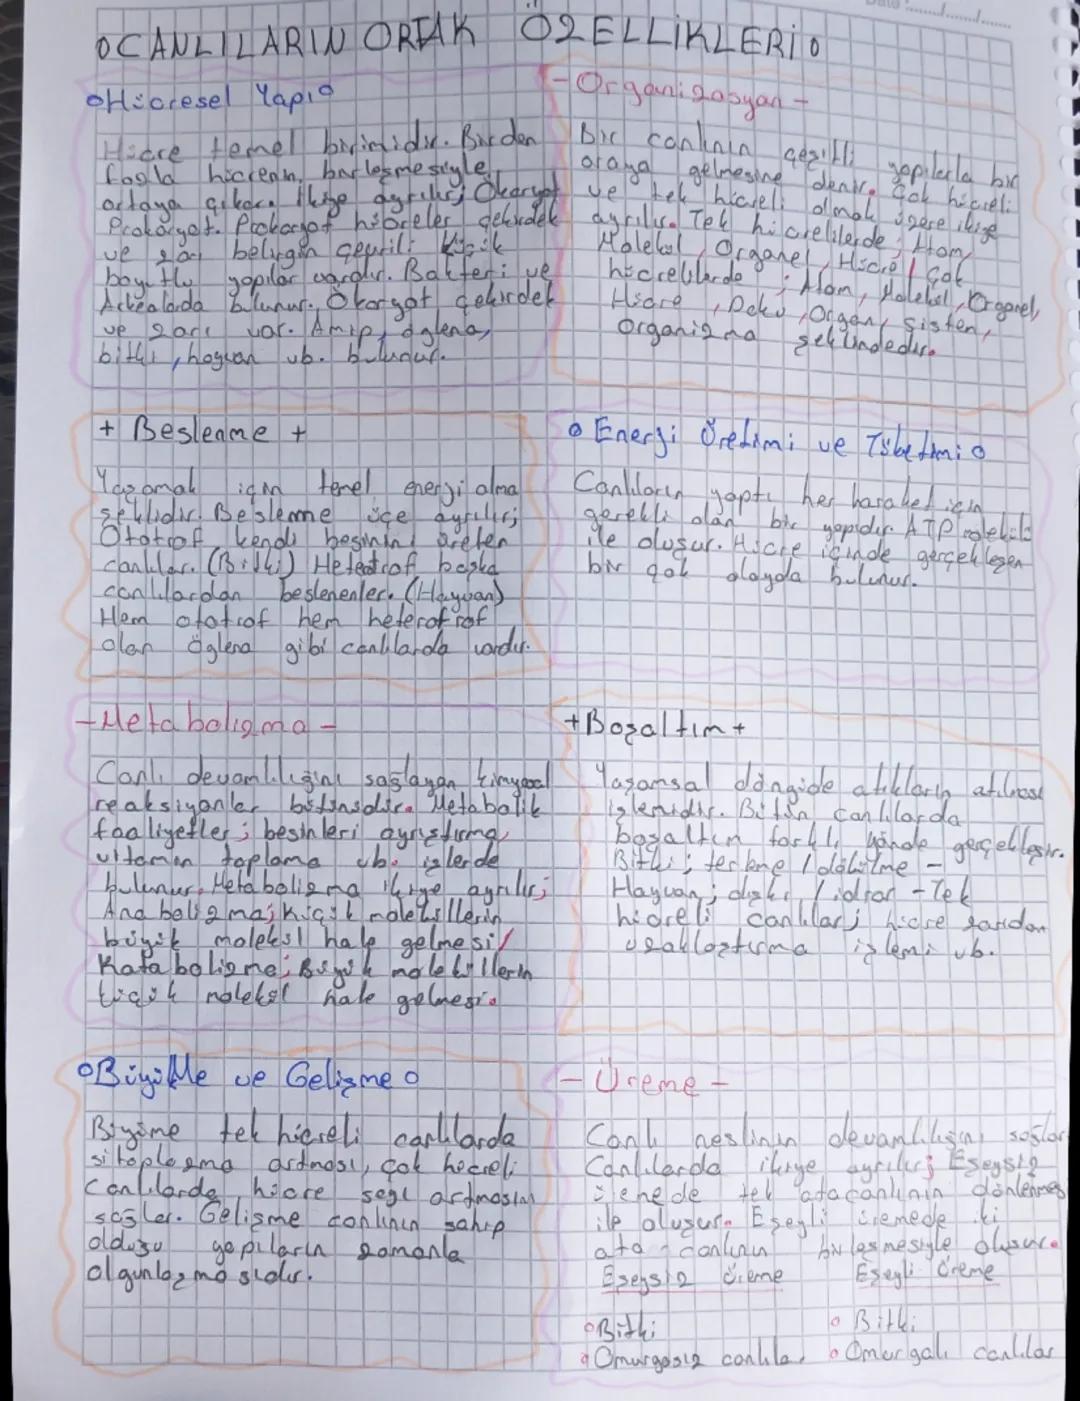 CANLILARIN ORTAK ÖZELLİKLERİ
Hücresel Yapı
Hücre temel birimidir. Birden
fazla hücrenin, birleşmesiyle
ortaya çıkar. İkiye ayrılır; Ökaryot
Prokaryot. Prokaryot hücreler çekirdek
ve zarı belirgin çevrili küçük
boyutlu yapılar vardır. Bakteri ve
Arkealarda bulunur. Ökaryot çekirdek
ve zarı var. Amip, öglena,
bitki, hayvan vb. bulunur.
- Organizasyon -
Bir canlının çeşitli yapılarla bir
araya gelmesine denir. Çok hücreli
ve tek hücreli olmak üzere ikiye
ayrılır. Tek hücrelilerde; Atom,
Molekül, Organel, Hücre / Çok
hücrelilerde ; Atom, Molekül, Organel,
Hücre, Doku, Organ, Sistem,
Organizma şeklindedir.
+ Beslenme +
Yaşamak için temel enerji alma
şeklidir. Beslenme üçe ayrılır;
Ototrof kendi besinini üreten
canlılar. (Bitki) Heterotrof başka
canlılardan beslenenler. (Hayvan)
Hem ototrof hem heterotrof
olan öglena gibi canlılarda vardır.
Enerji Üretimi ve Tüketimi
Canlıların yaptı her haraket için
gerekli olan bir yapıdır ATP molekülü
ile oluşur. Hücre içinde gerçekleşen
bir çok olayda bulunur.
- Metabolizma -
Canlı devamlılığını sağlayan kimyasal
reaksiyonlar bütünüdür. Metabolik
faaliyetler; besinleri ayrıştırma,
vitamin toplama vb. işlerde
bulunur. Metabolizma ikiye ayrılır;
Anabolizma; Küçük moleküllerin
büyük molekül hale gelmesi /
Katabolizma; Büyük moleküllerin
küçük molekül hale gelmesi.
+ Boşaltım +
Yaşamsal döngüde atıkların atılması
işlemidir. Bütün canlılarda
boşaltım farklı yönde gerçekleşir.
Bitki; terleme / dökülme -
Hayvan; dışkı / idrar - Tek
hücreli canlılar; hücre zarından
uzaklaştırma işlemi vb.
Büyüme ve Gelişme
Büyüme tek hücreli canlılarda
sitoplazma artması, çok hücreli
canlılarda hücre sayı artmasını
sağlar. Gelişme canlının sahip
olduğu yapıların zamanla
olgunlaşmasıdır.
- Üreme -
Canlı neslinin devamlılığını sağlar
Canlılarda ikiye ayrılır; Eşeysiz
üremede tek ata canlının döllenmesi
ile oluşur. Eşeyli üremede iki
ata canlının birleşmesiyle oluşur.
Eşeysiz Üreme Eşeyli Üreme
Bitki Bitki
Omurgasız canlılar Omurgalı canlılar